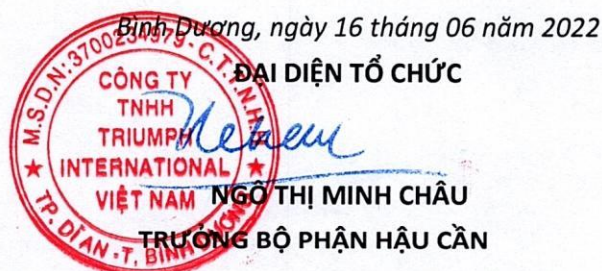 Bình Dương, ngày 16 tháng 06 năm 2022
ĐẠI DIỆN TỔ CHỨC
M.S.D.N: 3700234979 - C.T.T.N.H.H
CÔNG TY
TNHH
TRIUMPH
INTERNATIONAL
VIỆT NAM
TP. DĨ AN - T. BÌNH DƯƠNG
NGÔ THỊ MINH CHÂU
TRƯỞNG BỘ PHẬN HẬU CẦN